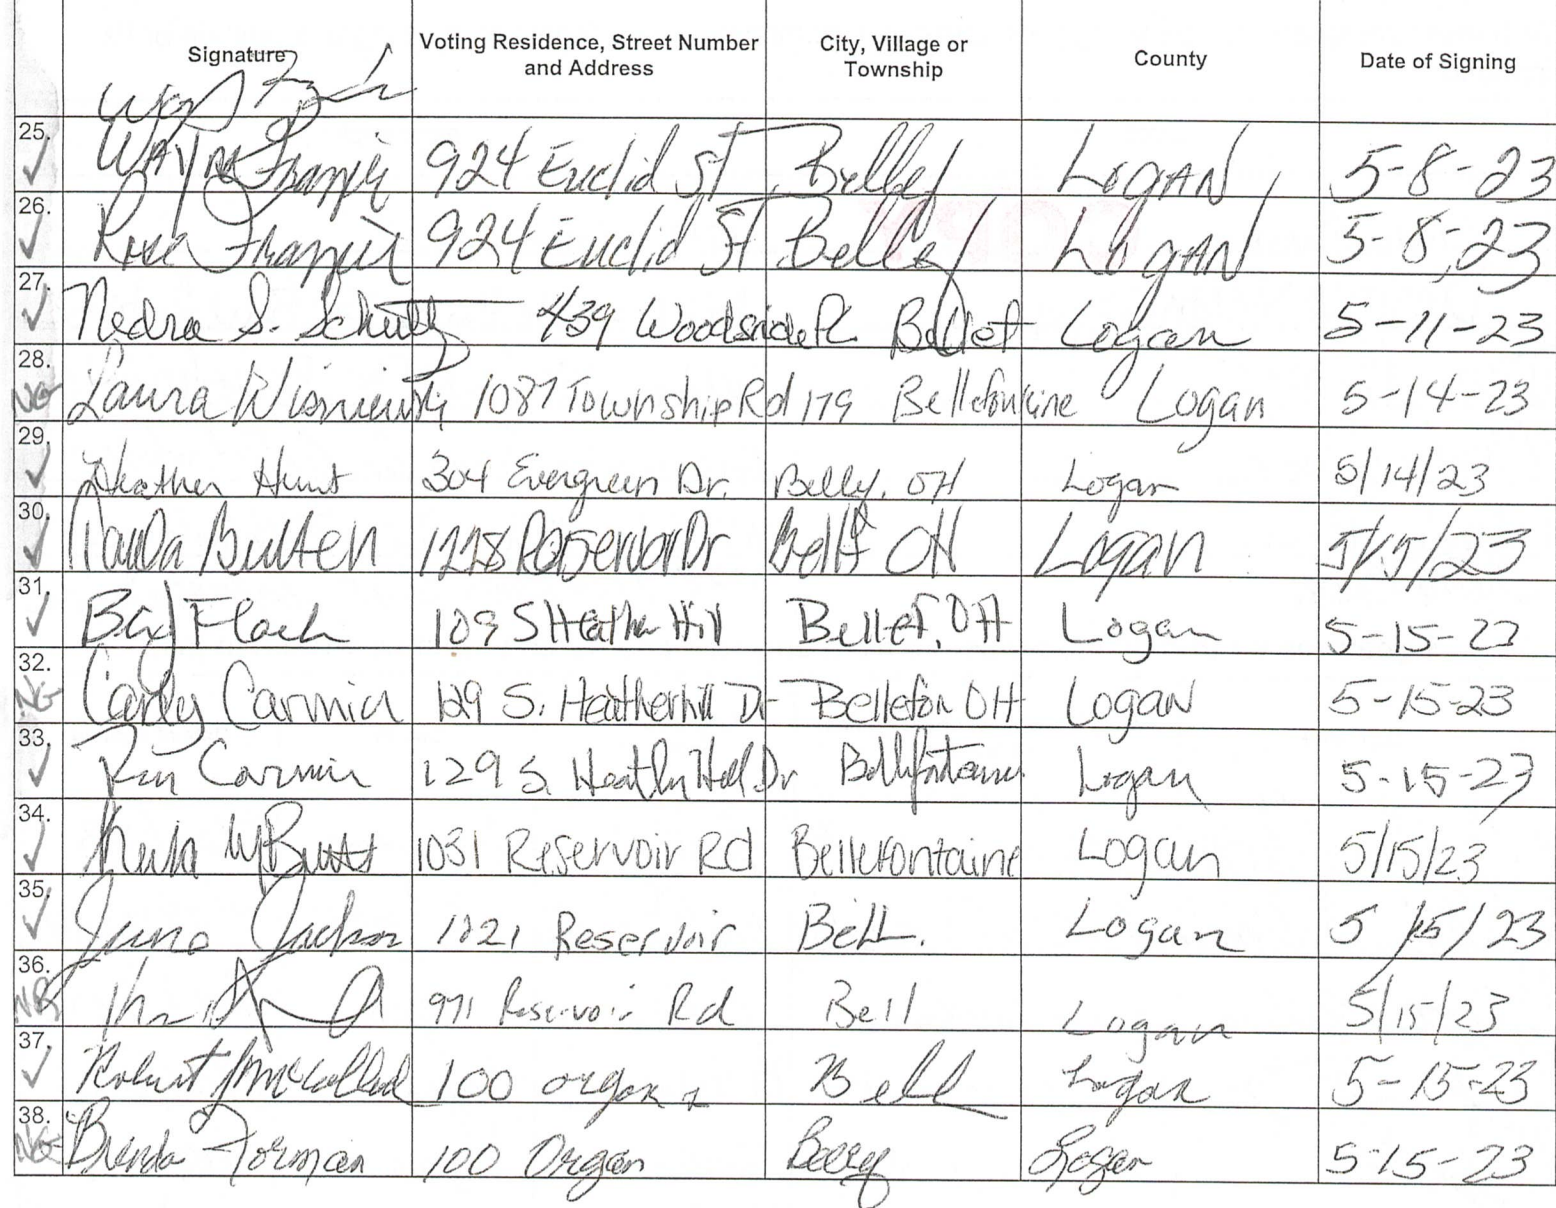 Signature Voting Residence, Street Number and Address City, Village or Township County Date of Signing
25. ✓ Wayne Frazier 924 Euclid St Bellef Logan 5-8-23
26. ✓ Frazier 924 Euclid St Bellef Logan 5-8-23
27. ✓ Nedra S. Schultz 439 Woodside Pl. Bellef Logan 5-11-23
28. NG Laura Wisniewski 1087 Township Rd 179 Bellefontaine Logan 5-14-23
29. ✓ Heather Hunt 304 Evergreen Dr. Belly, OH Logan 5/14/23
30. ✓ Butten 1228 Reservoir Dr Bellf OH Logan 5/15/23
31. ✓ Flach 109 S Heather Hill Bellef, OH Logan 5-15-23
32. NG Carly Carmin 129 S. Heatherhill Dr Bellefon OH Logan 5-15-23
33. ✓ Carmin 129 S. Heather Hill Dr Bellefontaine Logan 5-15-23
34. ✓ Butts 1031 Reservoir Rd Bellefontaine Logan 5/15/23
35. ✓ June Jackson 1021 Reservoir Bell. Logan 5/15/23
36. NR 971 Reservoir Rd Bell Logan 5/15/23
37. ✓ Robert McCollad 100 organ Bell Logan 5-15-23
38. NG Brenda Forman 100 Organ Logan 5-15-23